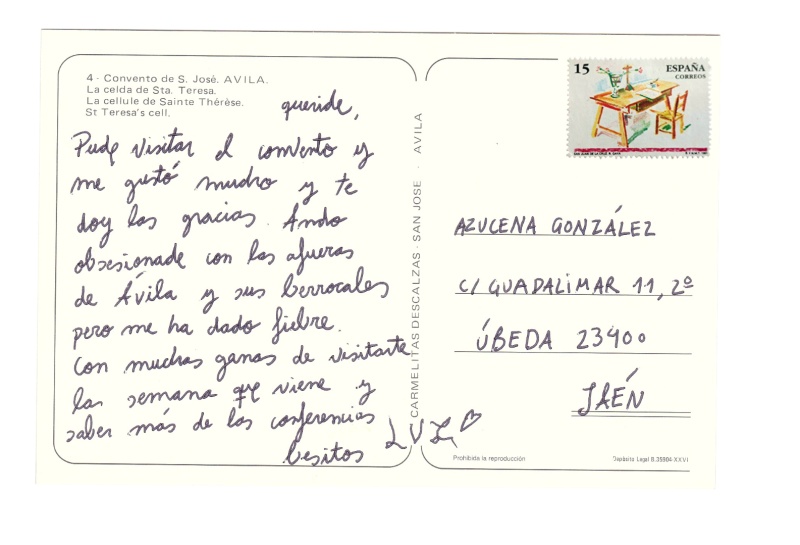 4 - Convento de S. José. AVILA.
La celda de Sta. Teresa.
La cellule de Sainte Thérèse.
St Teresa's cell.
queride,
Pude visitar el convento y
me gustó mucho y te
doy las gracias. Ando
obsesionade con las afueras
de Ávila y sus berrocales
pero me ha dado fiebre.
Con muchas ganas de visitarte
la semana que viene y
saber más de las conferencias
besitos
LUZ
CARMELITAS DESCALZAS · SAN JOSE · AVILA
15 ESPAÑA
CORREOS
AZUCENA GONZÁLEZ
C/ GUADALIMAR 11, 2º
ÚBEDA 23400
JAÉN
Prohibida la reproducción
Depósito Legal B. 35904-XXVI